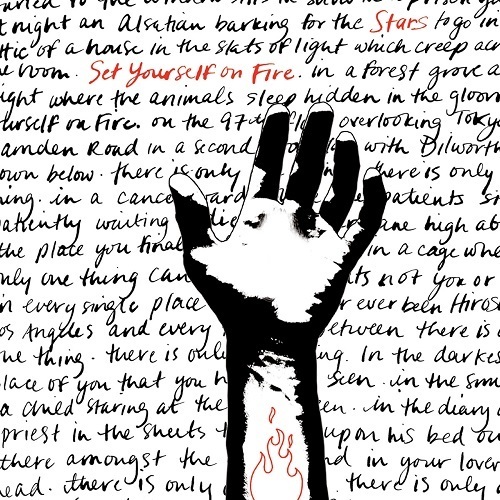 t night an Alsatian barking for the Stars to go in
ttic of a house in the slats of light which creep acr
e room. Set Yourself on Fire. in a forest grove a
ight where the animals sleep hidden in the gloom
urself on Fire. on the 97th overlooking Tokyo
amden Road in a second with Dilworth
own below. there is only here is only
ing. in a cance ard patients si
atiently waiting die ane high ab
the plate you final in a cage whe
nly one thing can ts not you or
n every single place r ever been Hiros
os Angeles and every etween there is o
ne thing. there is only ng. In the darkes
lace of you that you h seen. in the sm
a child staring at the en. in the diary o
priest in the sheets upon his bed ou
there amongst the nd in your lover
ead. there is only there is only